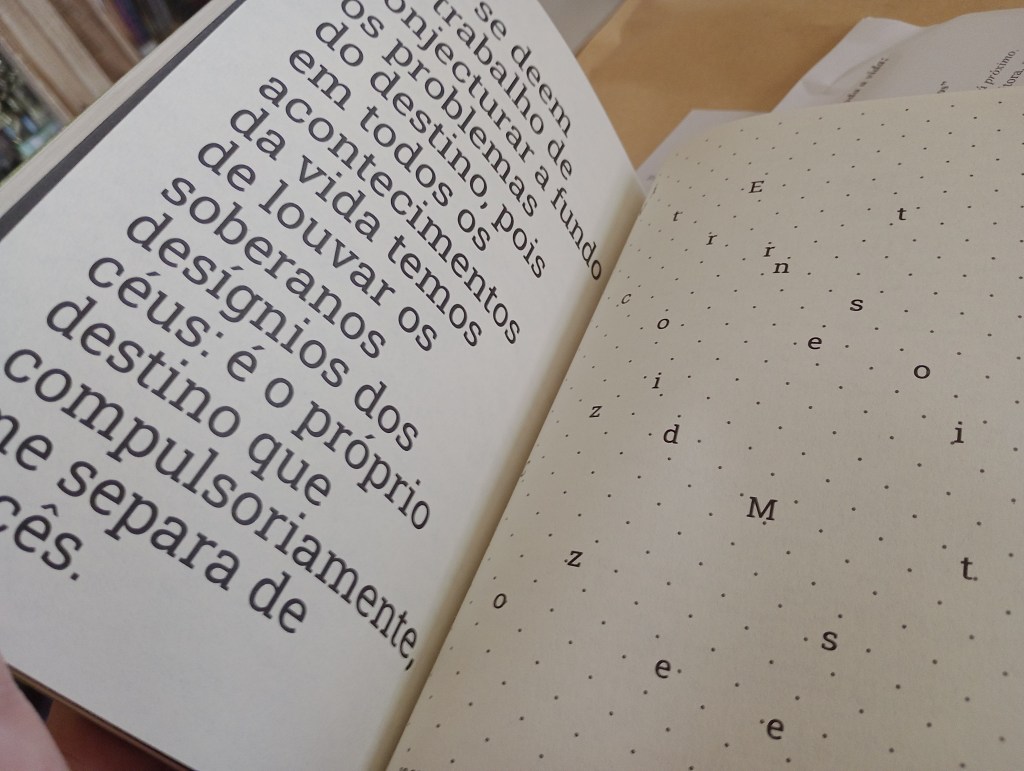 se deem
trabalho de
conjecturar a fundo
os problemas
do destino, pois
em todos os
acontecimentos
da vida temos
de louvar os
soberanos
desígnios dos
céus: é o próprio
destino que
compulsoriamente,
me separa de
cês.
E
r t
r r
i n
c s
o e
i o
z d i
M
z t
o s
e
e
próximo.